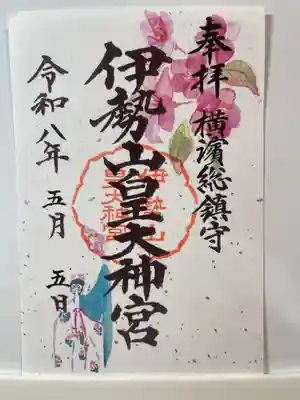 奉拝 横濱総鎮守
伊勢山皇大神宮
令和八年 五月 五日
伊勢山
皇大神宮